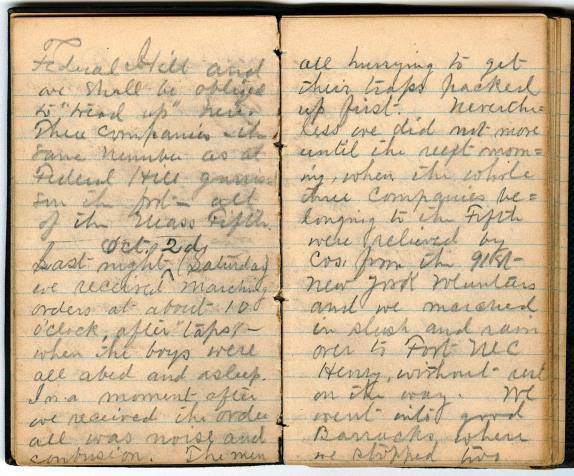 Federal Hill and
we shall be obliged
to "tread up" here.
Three companies - the
same number as at
Federal Hill garris-
on the post - all
of the Mass Fifth.
Oct, 2d,
Last night ^ (Saturday)
we received marching
orders at about 10
o'clock, after "taps" -
when the boys were
all abed and asleep.
In a moment after
we received the order
all was noise and
confusion. The men
all hurrying to get
their traps packed
up first. Neverthe=
less we did not move
until the next morn=
ing, when the whole
three companies be=
longing to the Fifth
were relieved by
Cos. from the 91st
New York Volunteers
and we marched
in slush and rain
over to Fort Mc
Henry, without rest
on the way. We
went into good
Barracks, where
we stopped two